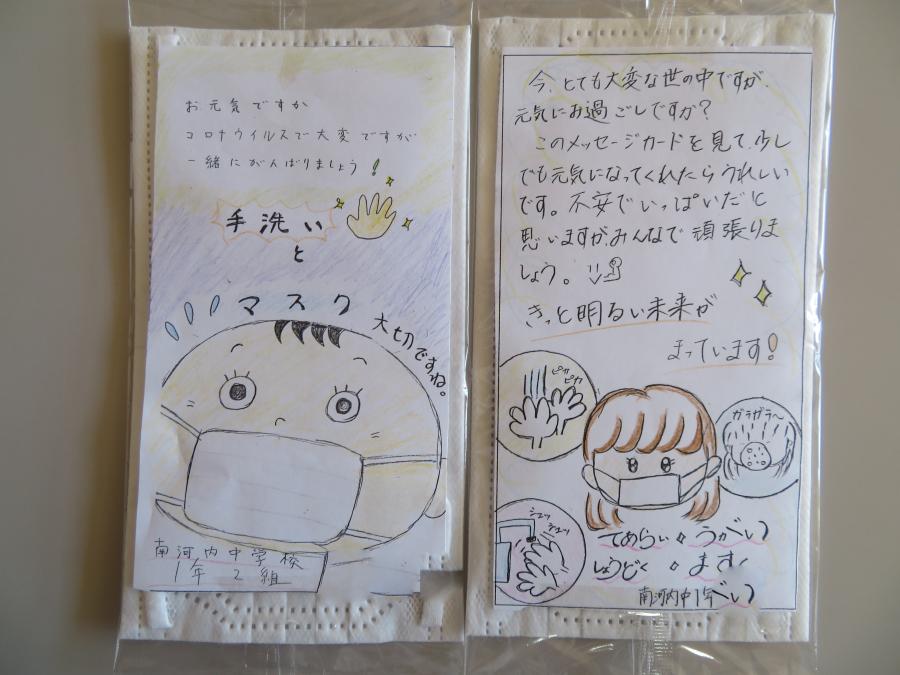 お元気ですか
コロナウイルスで大変ですが
一緒にがんばりましょう！
手洗い
と
マスク
大切ですね。
南河内中学校
1年2組
今、とても大変な世の中ですが、
元気にお過ごしですか？
このメッセージカードを見て、少し
でも元気になってくれたらうれしい
です。不安でいっぱいだと
思いますが、みんなで頑張りま
しょう。
きっと明るい未来が
まっています！
ピカピカ
ガラガラ〜
シュッ
シュッ
てあらい うがい
しょうどく ます
南河内中1年